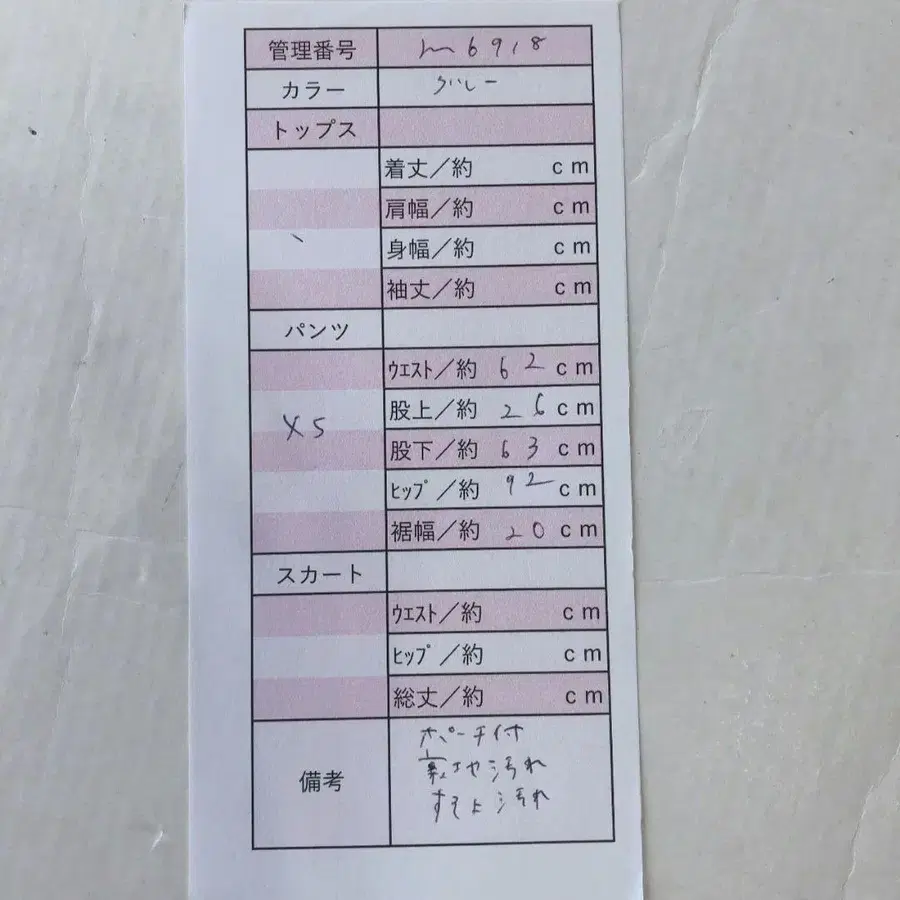 管理番号 m6918
カラー グレー
トップス
着丈／約 cm
肩幅／約 cm
身幅／約 cm
袖丈／約 cm
パンツ
XS
ウエスト／約 62 cm
股上／約 26 cm
股下／約 63 cm
ヒップ／約 92 cm
裾幅／約 20 cm
スカート
ウエスト／約 cm
ヒップ／約 cm
総丈／約 cm
備考
ポーチ付
汚れ
汚れ